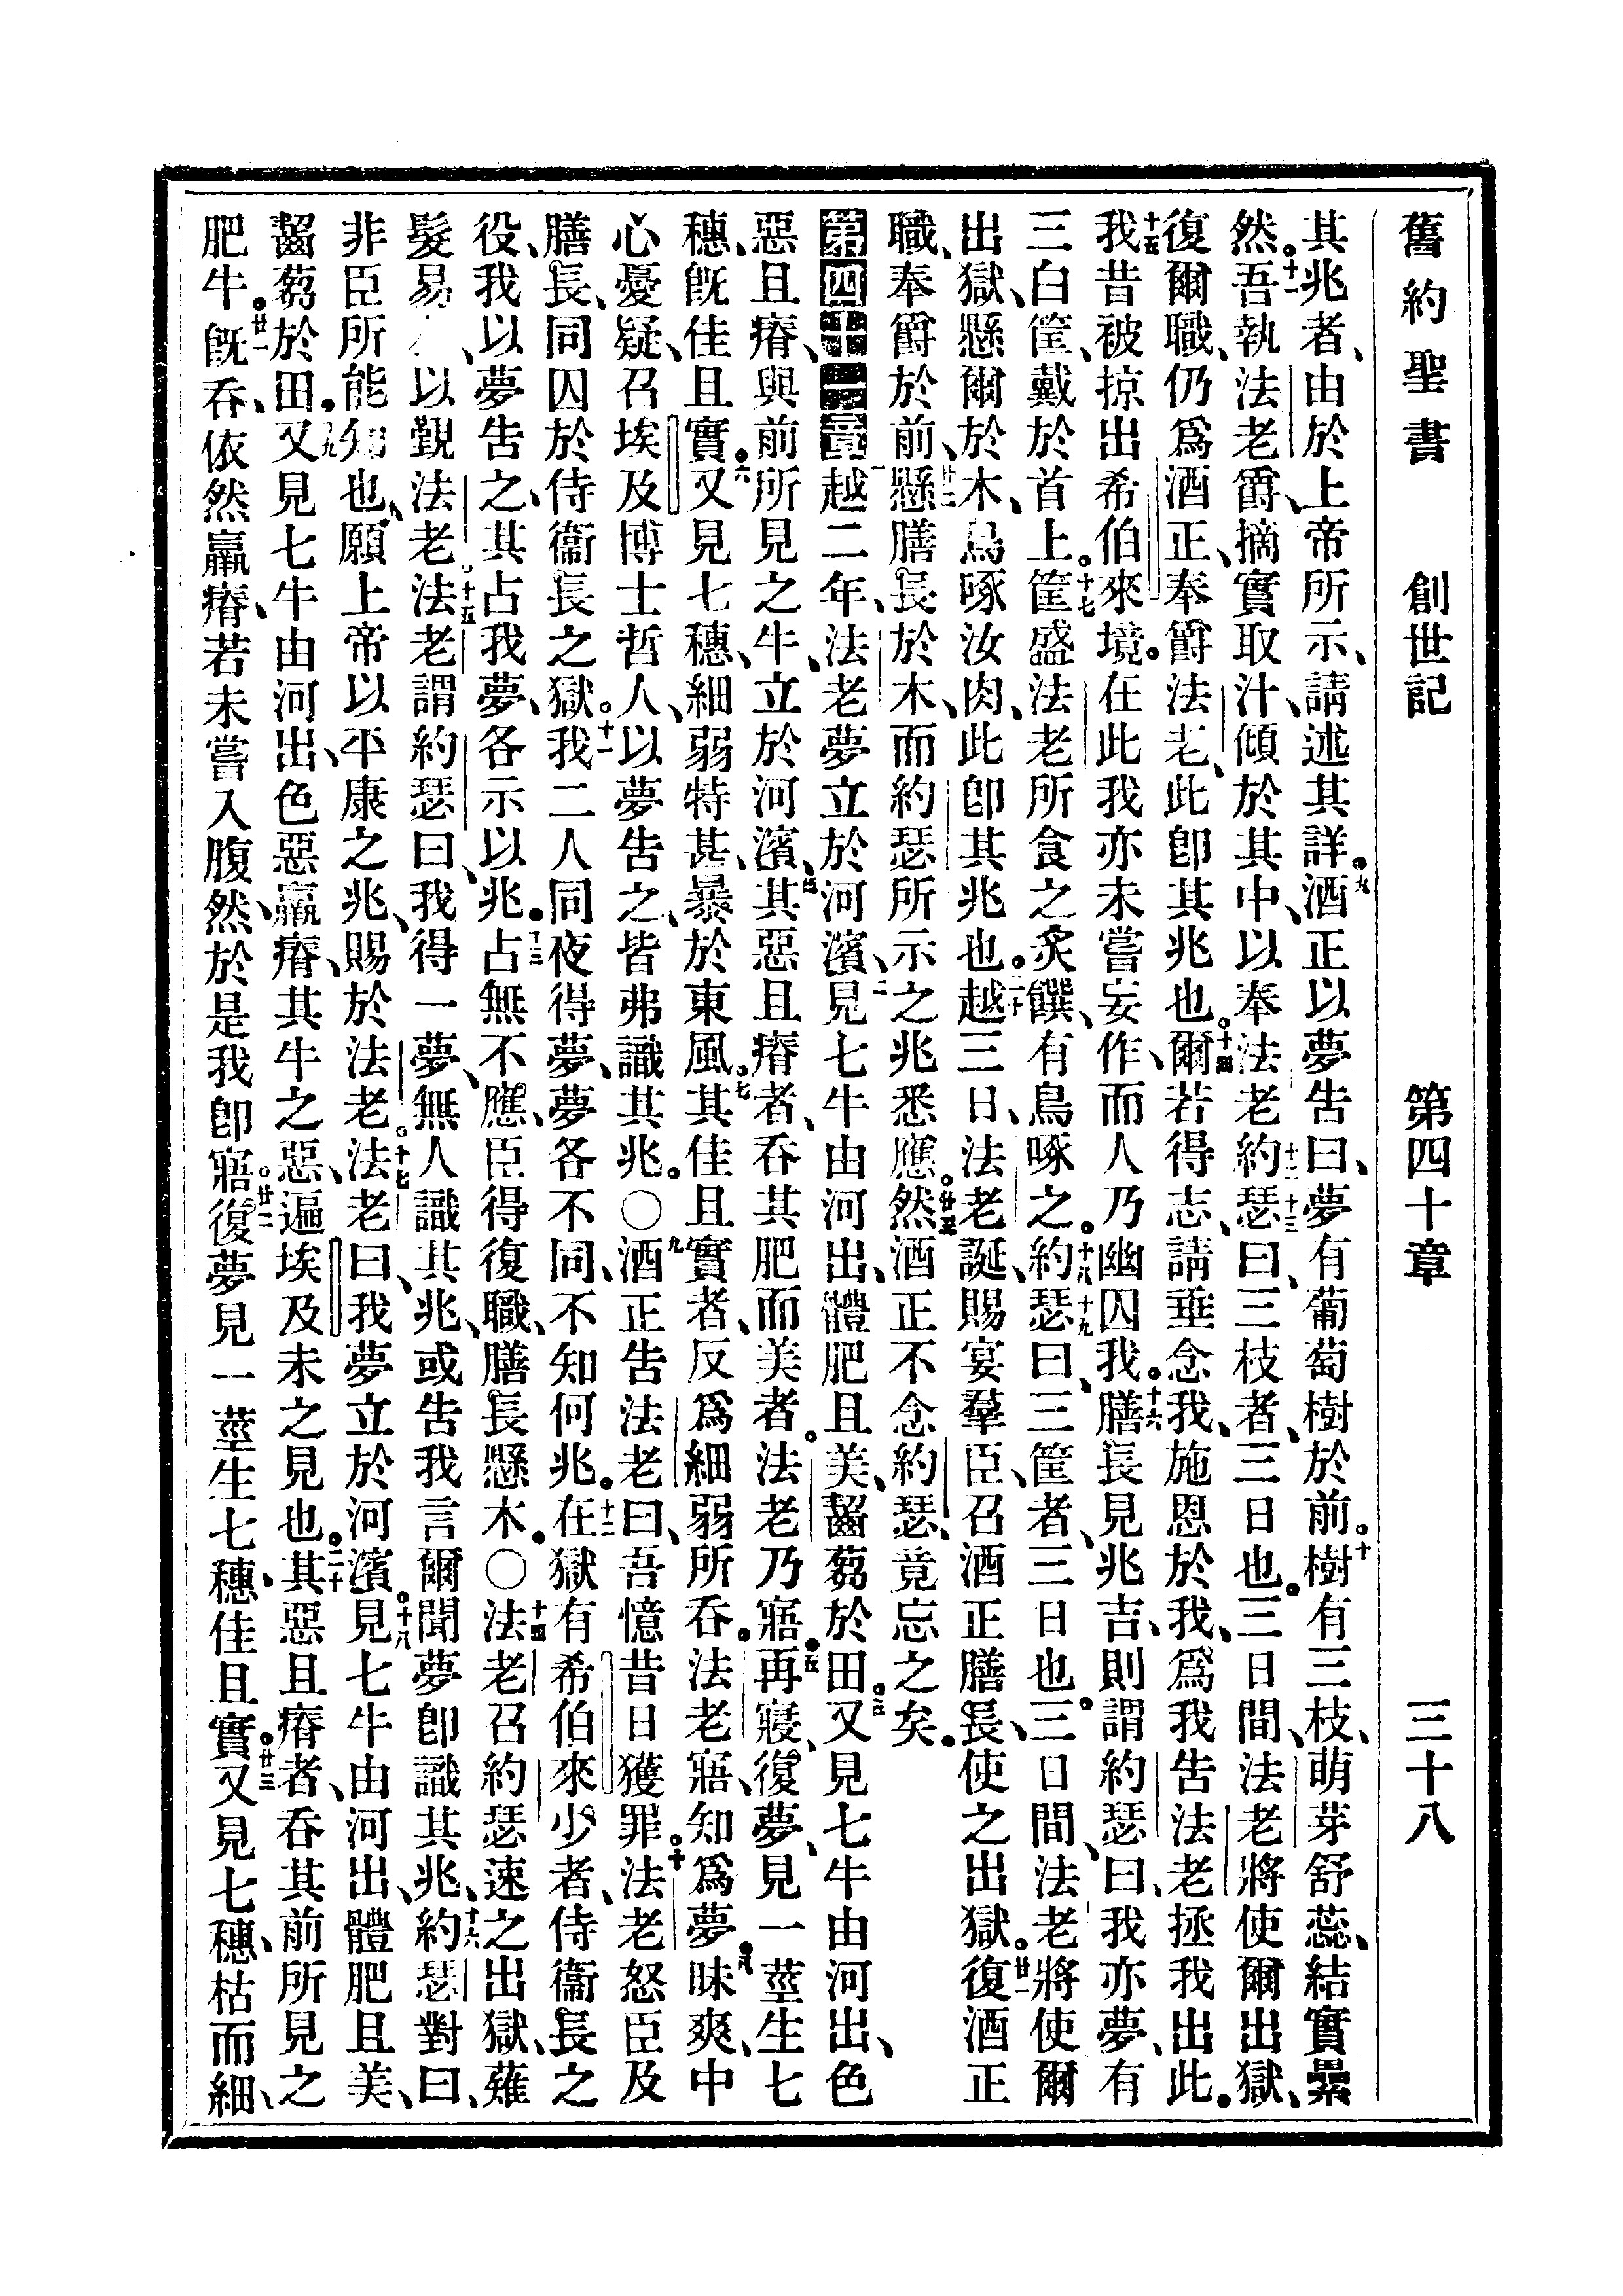 舊約聖書 創世記 第四十章 三十八
其兆者、由於上帝所示、請述其詳。九酒正以夢告曰、夢有葡萄樹於前。十樹有三枝、萌芽舒蕊、結實纍
然。十一吾執法老爵、摘實取汁、傾於其中、以奉法老。十二約瑟曰、三枝者、三日也。十三三日間、法老將使爾出獄、
復爾職、仍爲酒正、奉爵法老、此卽其兆也。十四爾若得志、請垂念我、施恩於我、爲我告法老、拯我出此。
十五我昔被掠、出希伯來境。在此我亦未嘗妄作、而人乃幽囚我。十六膳長見兆吉、則謂約瑟曰、我亦夢、有
三白筐、戴於首上。十七筐盛法老所食之炙饌、有鳥啄之。十八約瑟曰、三筐者、三日也。十九三日間、法老將使爾
出獄、懸爾於木、鳥啄汝肉、此卽其兆也。二十越三日、法老誕、賜宴羣臣、召酒正膳長、使之出獄。廿一復酒正
職、奉爵於前、廿二懸膳長於木、而約瑟所示之兆悉應。廿三然酒正不念約瑟、竟忘之矣。
第四十一章 一越二年、法老夢立於河濱、二見七牛由河出、體肥且美、齧芻於田。三又見七牛由河出、色
惡且瘠、與前所見之牛、立於河濱、四其惡且瘠者、吞其肥而美者。法老乃寤。五再寢、復夢、見一莖生七
穗、旣佳且實。六又見七穗、細弱特甚、暴於東風。七其佳且實者、反爲細弱所吞。法老寤、知爲夢。八昧爽、中
心憂疑、召埃及博士哲人、以夢告之、皆弗識其兆。〇九酒正告法老曰、吾憶昔日獲罪。十法老怒臣及
膳長、同囚於侍衞長之獄。十一我二人同夜得夢、夢各不同、不知何兆。十二在獄有希伯來少者、侍衞長之
役、我以夢告之、其占我夢、各示以兆。十三占無不應、臣得復職、膳長懸木。〇十四法老召約瑟、速之出獄、薙
髮易、以覲法老。十五法老謂約瑟曰、我得一夢、無人識其兆、或告我言、爾聞夢卽識其兆、十六約瑟對曰、
非臣所能知也、願上帝以平康之兆、賜於法老。十七法老曰、我夢立於河濱。十八見七牛由河出、體肥且美、
齧芻於田。十九又見七牛由河出、色惡羸瘠、其牛之惡、遍埃及未之見也。二十其惡且瘠者、吞其前所見之
肥牛。廿一旣吞、依然羸瘠、若未嘗入腹、然於是我卽寤。廿二復夢見一莖生七穗、佳且實。廿三又見七穗、枯而細、